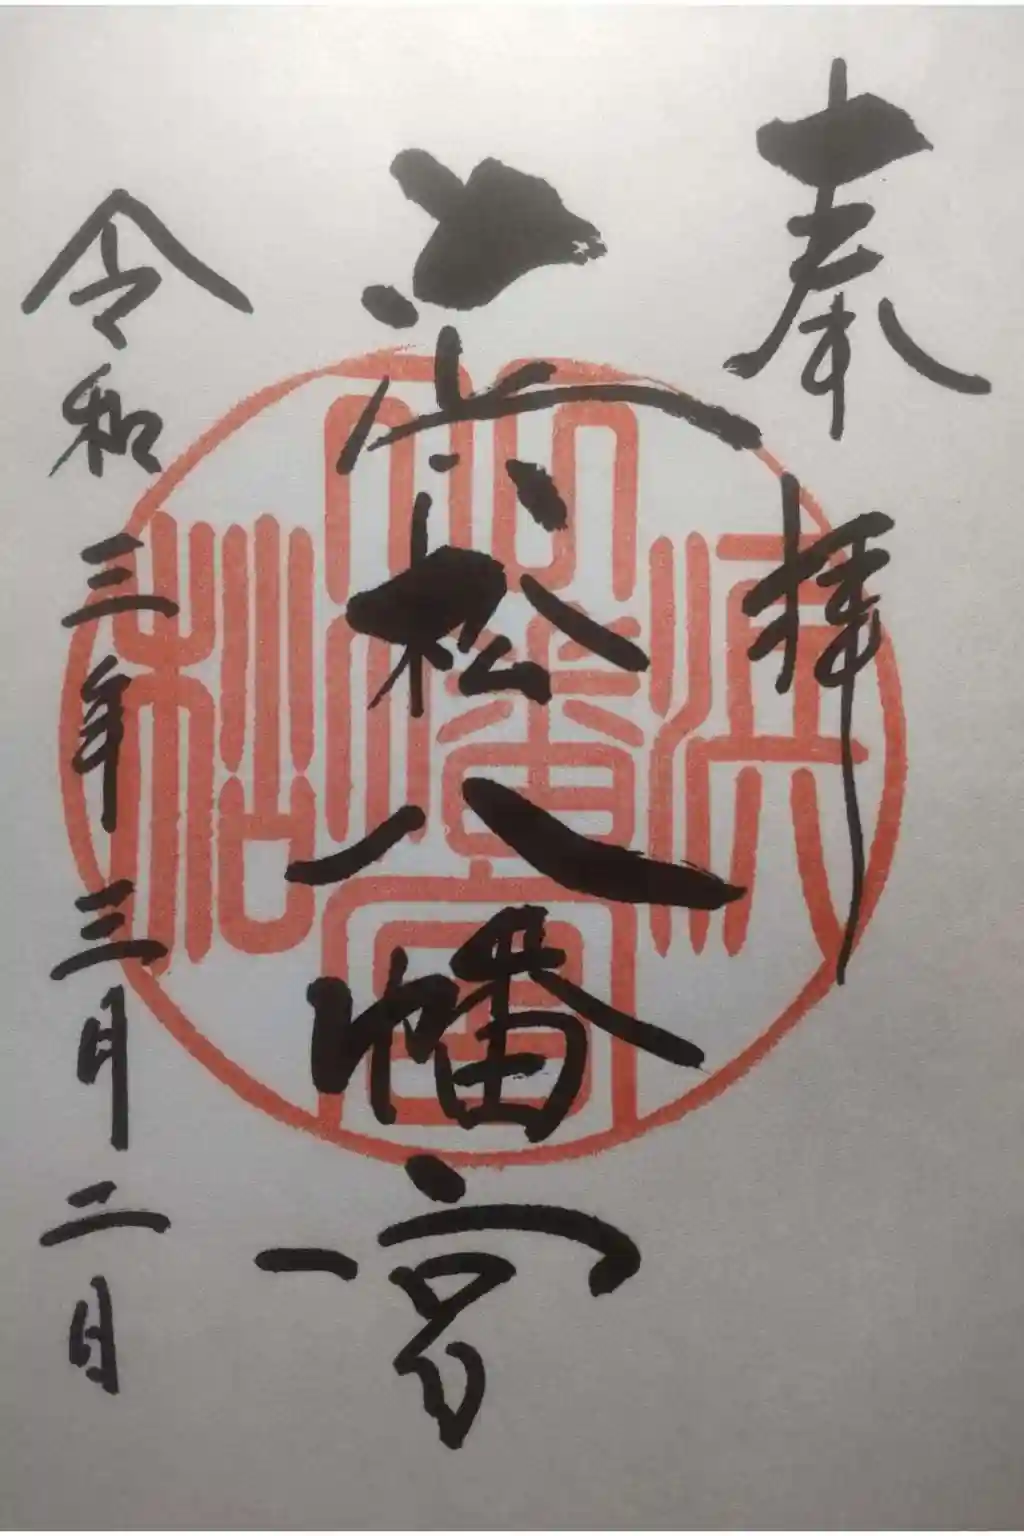 奉拝
濱松八幡宮
令和三年三月二日
濱松
八幡宮